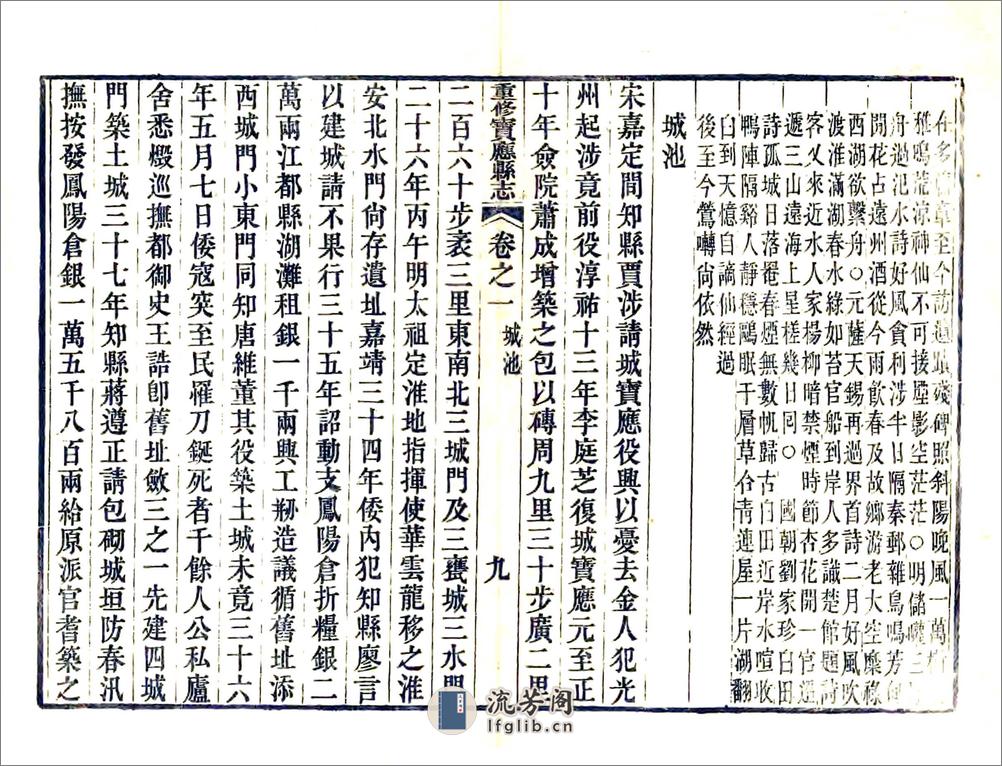 至今訪遺蹟殘碑照斜陽晚風一萬
鴉鳴荒涼神仙不可接煙影空茫茫○明儲巏三
舟過氾水詩好風貪利涉半日隔秦郵雜鳥鳴芳甸
閒花占遠州酒從今雨飲春及故鄉游老大空麋祿
西湖欲繫舟○元薩天錫再過界首詩二月好風吹
渡淮滿湖春水綠如苔官船到岸人多識楚館題詩
客又來近水人家楊柳暗禁煙時節杏花開一官迢
遞三山遠海上星槎幾日回○國朝劉家珍白田
詩孤城日落罨春煙無數帆歸古白田近岸水喧收
鴨陣隔谿人靜穩鷗眠千層草合青連屋一片湖翻
白到天憶自謫仙經過
後至今鶯囀尚依然
城池
宋嘉定間知縣賈涉請城寶應役興以憂去金人犯光
州起涉竟前役淳祐十三年李庭芝復城寶應元至正
十年僉院蕭成增築之包以磚周九里三十步廣二里
重修寶應縣志 卷之一 城池 九
二百六十步袤三里東南北三城門及三甕城三水門
二十六年丙午明太祖定淮地指揮使華雲龍移之淮
安北水門尚存遺址嘉靖三十四年倭內犯知縣廖言
以建城請不果行三十五年詔動支鳳陽倉折糧銀二
萬兩江都縣湖灘租銀一千兩興工剏造議循舊址添
西城門小東門同知唐維董其役築土城未竟三十六
年五月七日倭寇突至民罹刀鋋死者千餘人公私廬
舍悉燬巡撫都御史王誥卽舊址斂三之一先建四城
門築土城三十七年知縣蔣遵正請包砌城垣防春汛
撫按發鳳陽倉銀一萬五千八百兩給原派官耆築之
流芳阁
lfglib.cn